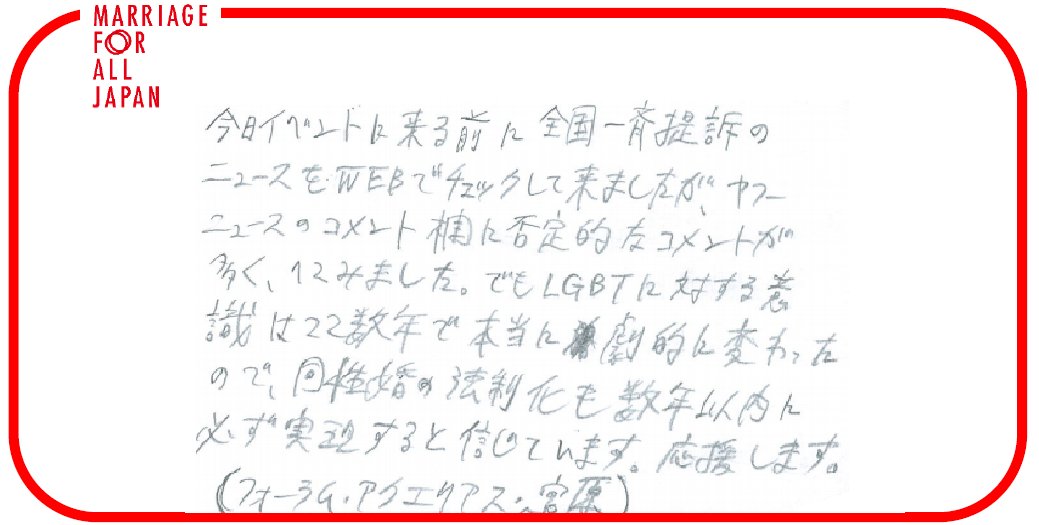 MARRIAGE
FOR
ALL
JAPAN
今日イベントに来る前に全国一斉提訴の
ニュースをWEBでチェックして来ましたが、ヤフー
ニュースのコメント欄に否定的なコメントが
多く、へこみました。でもLGBTに対する意
識はここ数年で本当に劇的に変わった
ので、同性婚の法制化も数年以内に
必ず実現すると信じています。応援します。
(フォーラム・アクエリアス・宮原)